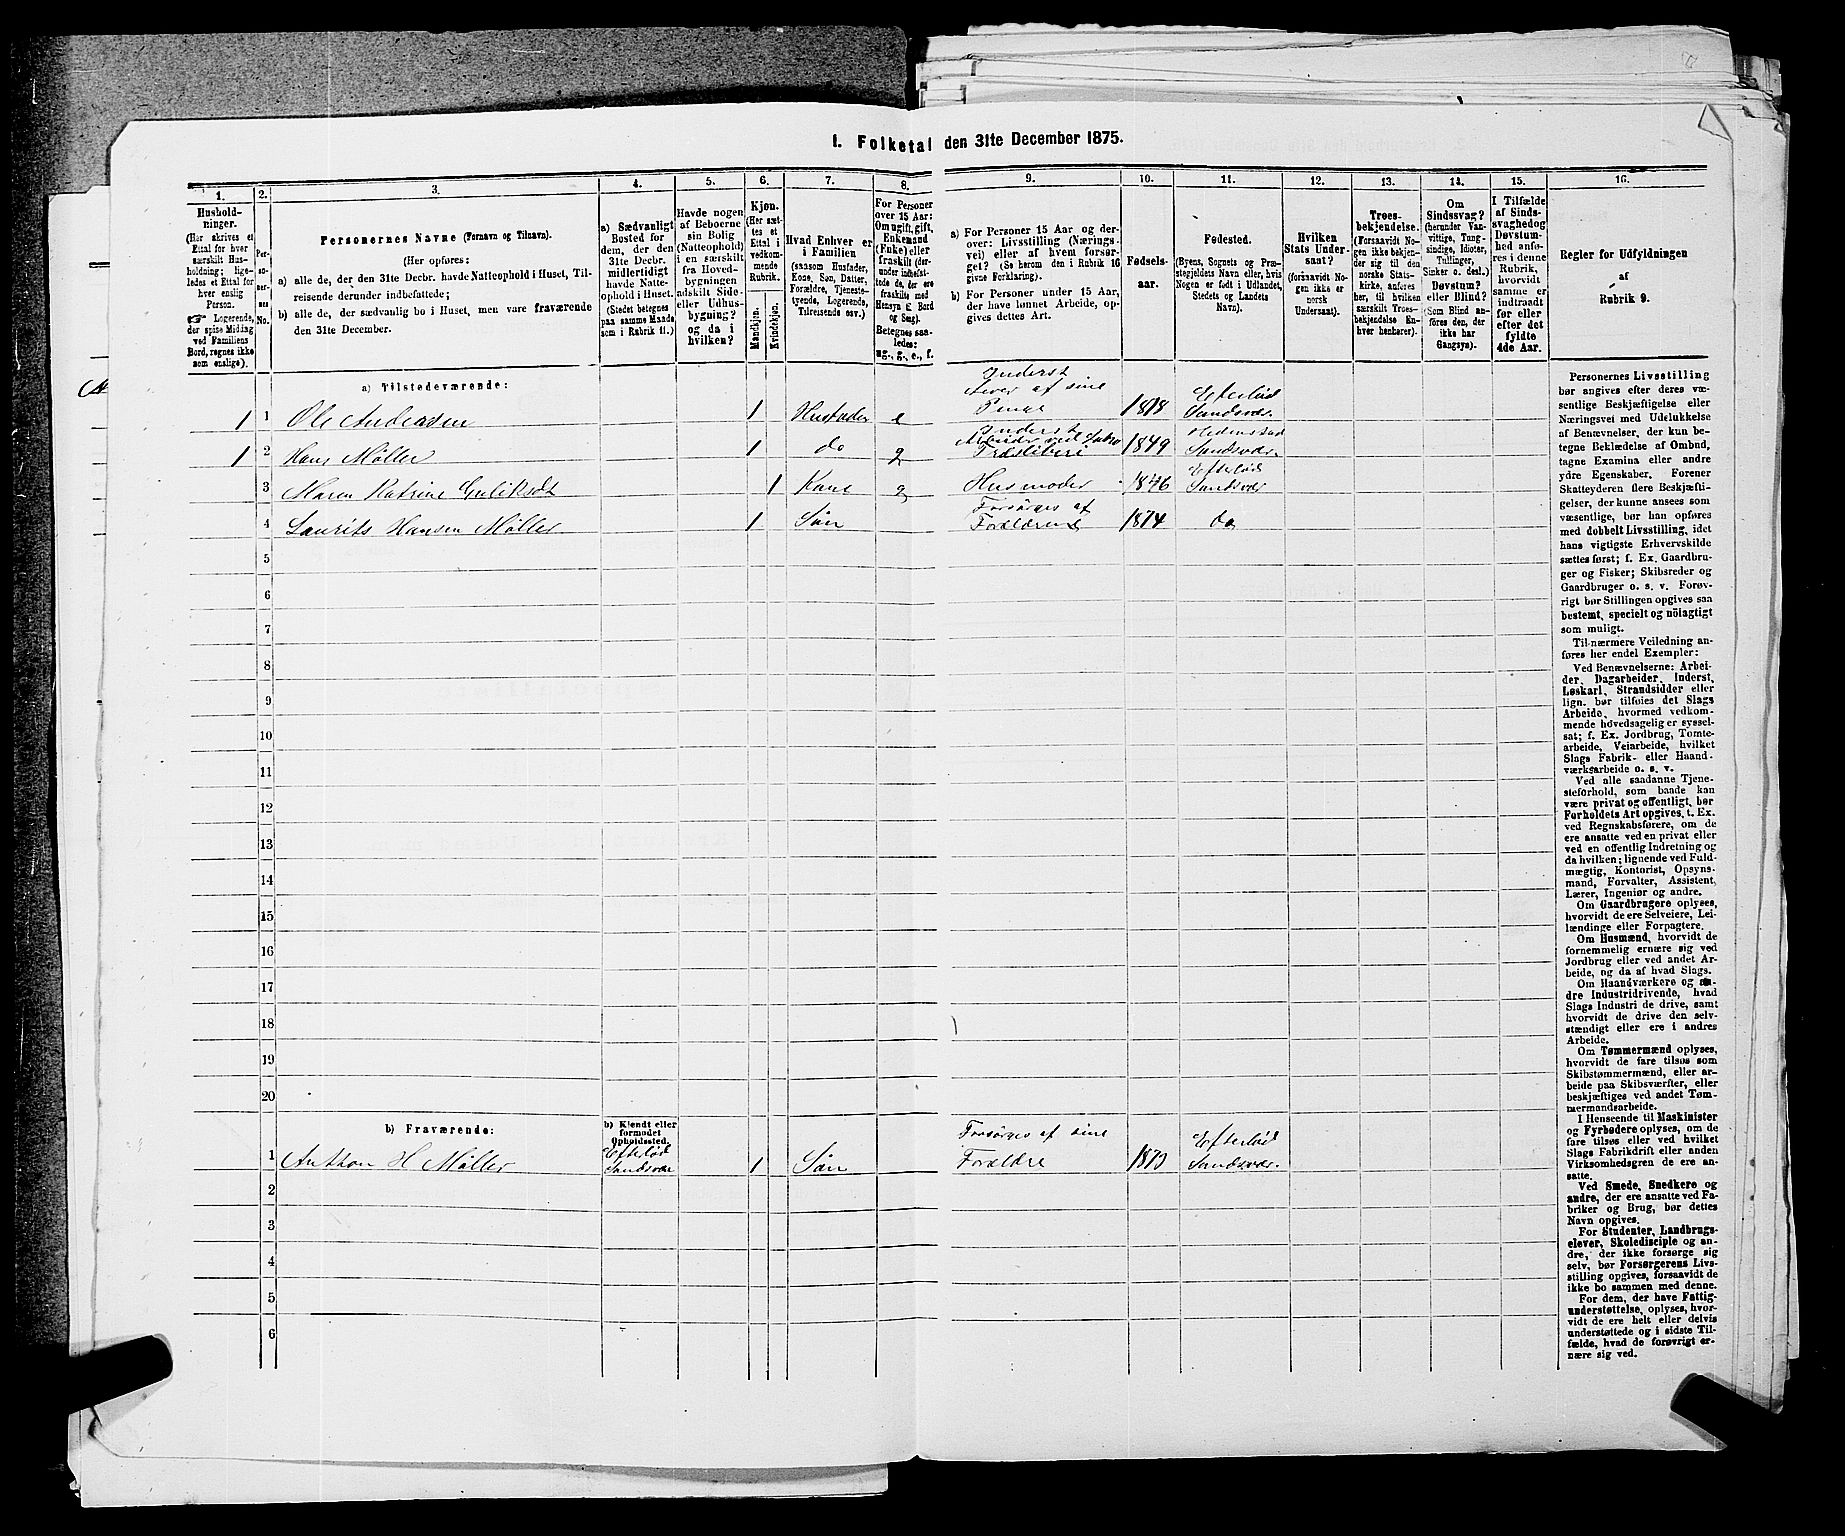 1. Folketal den 31te December 1875.
1. 2. 3. 4. 5. 6. 7. 8. 9. 10. 11. 12. 13. 14. 15. 16.
Hushold-
ninger.
(Her skrives et
Ettal for hver
særskilt Hus-
holdning; lige-
ledes et Ettal for
hver enslig
Person.
☞ Logerende,
der spise Middag
ved Familiens
Bord, regnes ikke
som enslige).
Per-
so-
ner-
nes
No.
Personernes Navne (Fornavn og Tilnavn).
(Her opføres:
a) alle de, der den 31te Decbr. havde Natteophold i Huset, Til-
reisende derunder indbefattede;
b) alle de, der sædvanlig bo i Huset, men vare fraværende
den 31te December.
a) Sædvanligt
Bosted for
dem, der den
31te Decbr.
midlertidigt
havde Natte-
ophold i Huset.
(Stedet betegnes
paa samme Maade
som i Rubrik 11.)
Havde nogen
af Beboerne
sin Bolig
(Natteophold)
i en særskilt
fra Hoved-
bygningen
adskilt Side-
eller Udhus-
bygning?
og da i
hvilken?
Kjøn.
(Her sæt-
tes et
Ettal i
vedkom-
mende
Rubrik.
Mandkjøn.
Kvindekjøn.
Hvad Enhver er
i Familien
(saasom Husfader,
Kone, Søn, Datter,
Forældre, Tjeneste-
tyende, Logerende,
Tilreisende osv.)
For Personer
over 15 Aar:
Om ugift, gift,
Enkemand
(Enke) eller
fraskilt (der-
under indbefat-
tede de, der ere
fraskilte med
Hensyn til Bord
og Seng).
Betegnes saa-
ledes:
ug., g., e., f.
a) For Personer 15 Aar og der-
over: Livsstilling (Nærings-
vei) eller af hvem forsør-
get? (Se herom den i Rubrik 16
givne Forklaring).
b) For Personer under 15 Aar,
der have lønnet Arbeide, op-
gives dettes Art.
Fødsels-
aar.
Fødested.
(Byens, Sognets og Præ-
stegjeldets Navn eller, hvis
Nogen er født i Udlandet,
Stedets og Landets
Navn).
Hvilken
Stats Under-
saat?
(forsaavidt No-
gen ikke er
norsk
Undersaat).
Troes-
bekjendelse.
(Forsaavidt No-
gen ikke bekjen-
der sig til den
norske Stats-
kirke, anføres
her, til hvilken
særskilt Troes-
bekjendelse En-
hver henhører).
Om
Sindssvag?
(herunder Van-
vittige, Tung-
sindige, Idioter,
Tullinger,
Sinker o. desl.)
Døvstum?
eller Blind?
(Som Blind an-
føres den, der
ikke har
Gangsyn).
I Tilfælde
af Sinds-
svaghed og
Døvstum-
hed anfø-
res i denne
Rubrik,
hvorvidt
samme er
indtraadt
før eller
efter det
fyldte
4de Aar.
Regler for Udfyldningen
af
Rubrik 9.
a) Tilstedeværende:
1 1 Ole Andersen 1 Husfader e Inderst lever af sine Penge 1818 Eftelød Sandsvær
1 2 Hans Møller 1 do g Inderst 1849 Hedenstad Sandsvær
3 Maren Katrine Guliksdt 1 Kone g Husmoder 1846 Eftelød Sandsvær
4 Laurits Hansen Møller 1 Søn Forsørges af Forældrene 1874 do
5
6
7
8
9
10
11
12
13
14
15
16
17
18
19
20
b) Fraværende:
b) Kjendt eller
formodet
Opholdssted.
1 Anthon H Møller Eftelød Sandsvær 1 Søn Forsørges af sine Forældre 1870 Eftelød Sandsvær
2
3
4
5
6
Personernes Livsstilling
bør angives efter deres væ-
sentlige Beskjæftigelse eller
Næringsvei med Udelukkelse
af Benævnelser, der kun be-
tegne Beklædelse af Ombud,
tagne Examina eller andre
ydre Egenskaber. Forener
Skatteyderen flere Beskjæfti-
gelser, der kunne ansees som
væsentlige, bør han opføres
med dobbelt Livsstilling, idet
hans vigtigste Erhvervskilde
sættes først; f. Ex. Gaardbru-
ger og Fisker; Skibsreder og
Gaardbruger o. s. v. Forøv-
rigt bør Stillingen opgives saa
bestemt, specielt og nöiagtigt
som muligt.
Til nærmere Veiledning an-
føres her endel Exempler:
Ved Benævnelserne: Arbei-
der, Dagarbeider, Inderst,
Løskarl, Strandsidder eller
lign. bør tilføies det Slags
Arbeide, hvormed vedkom-
mende hovedsagelig er syssel-
sat; f. Ex. Jordbrug, Tomte-
arbeide, Veiarbeide, hvilket
Slags Fabrik- eller Haand-
værksarbeide o. s. v.
Ved alle saadanne Tjene-
steforhold, som baade kan
være privat og offentligt, bør
Forholdets Art opgives, t. Ex.
ved Regnskabsførere, om de
ere ansatte ved en privat eller
ved en offentlig Indretning og
da hvilken; lignende ved Fuld-
mægtig, Kontorist, Opsyns-
mand, Forvalter, Assistent,
Lærer, Ingeniør og andre.
Om Gaardbrugere oplyses,
hvorvidt de ere Selveiere, Lei-
lændinge eller Forpagtere.
Om Husmænd, hvorvidt de
fornemmelig ernære sig ved
Jordbrug eller ved andet Ar-
beide, og da af hvad Slags.
Om Haandværkere og an-
dre Industridrivende, hvad
Slags Industri de drive, samt
hvorvidt de drive den selv-
stændigt eller ere i andres
Arbeide.
Om Tømmermænd oplyses,
hvorvidt de fare tilsøs som
Skibstømmermænd, eller ar-
beide paa Skibsværfter, eller
beskjæftiges ved andet Tøm-
mermandsarbeide.
I Henseende til Maskinister
og Fyrbødere oplyses, om de
fare tilsøs eller ved hvilket
Slags Fabrikdrift eller anden
Virksomhedsgren de ere an-
satte.
Ved Smede, Snedkere og
andre, der ere ansatte ved Fa-
briker og Brug, bør dettes
Navn opgives.
For Studenter, Landbrugs-
elever, Skoledisciple og an-
dre, der ikke forsørge sig
selv, bør Forsørgerens Livs-
stilling opgives, forsaavidt de
ikke bo sammen med denne.
For dem, der have Fattig-
understøttelse, oplyses, hvor-
vidt de ere helt eller delvis
understøttede og i sidste Til-
fælde, hvad de forøvrigt er-
nære sig ved.